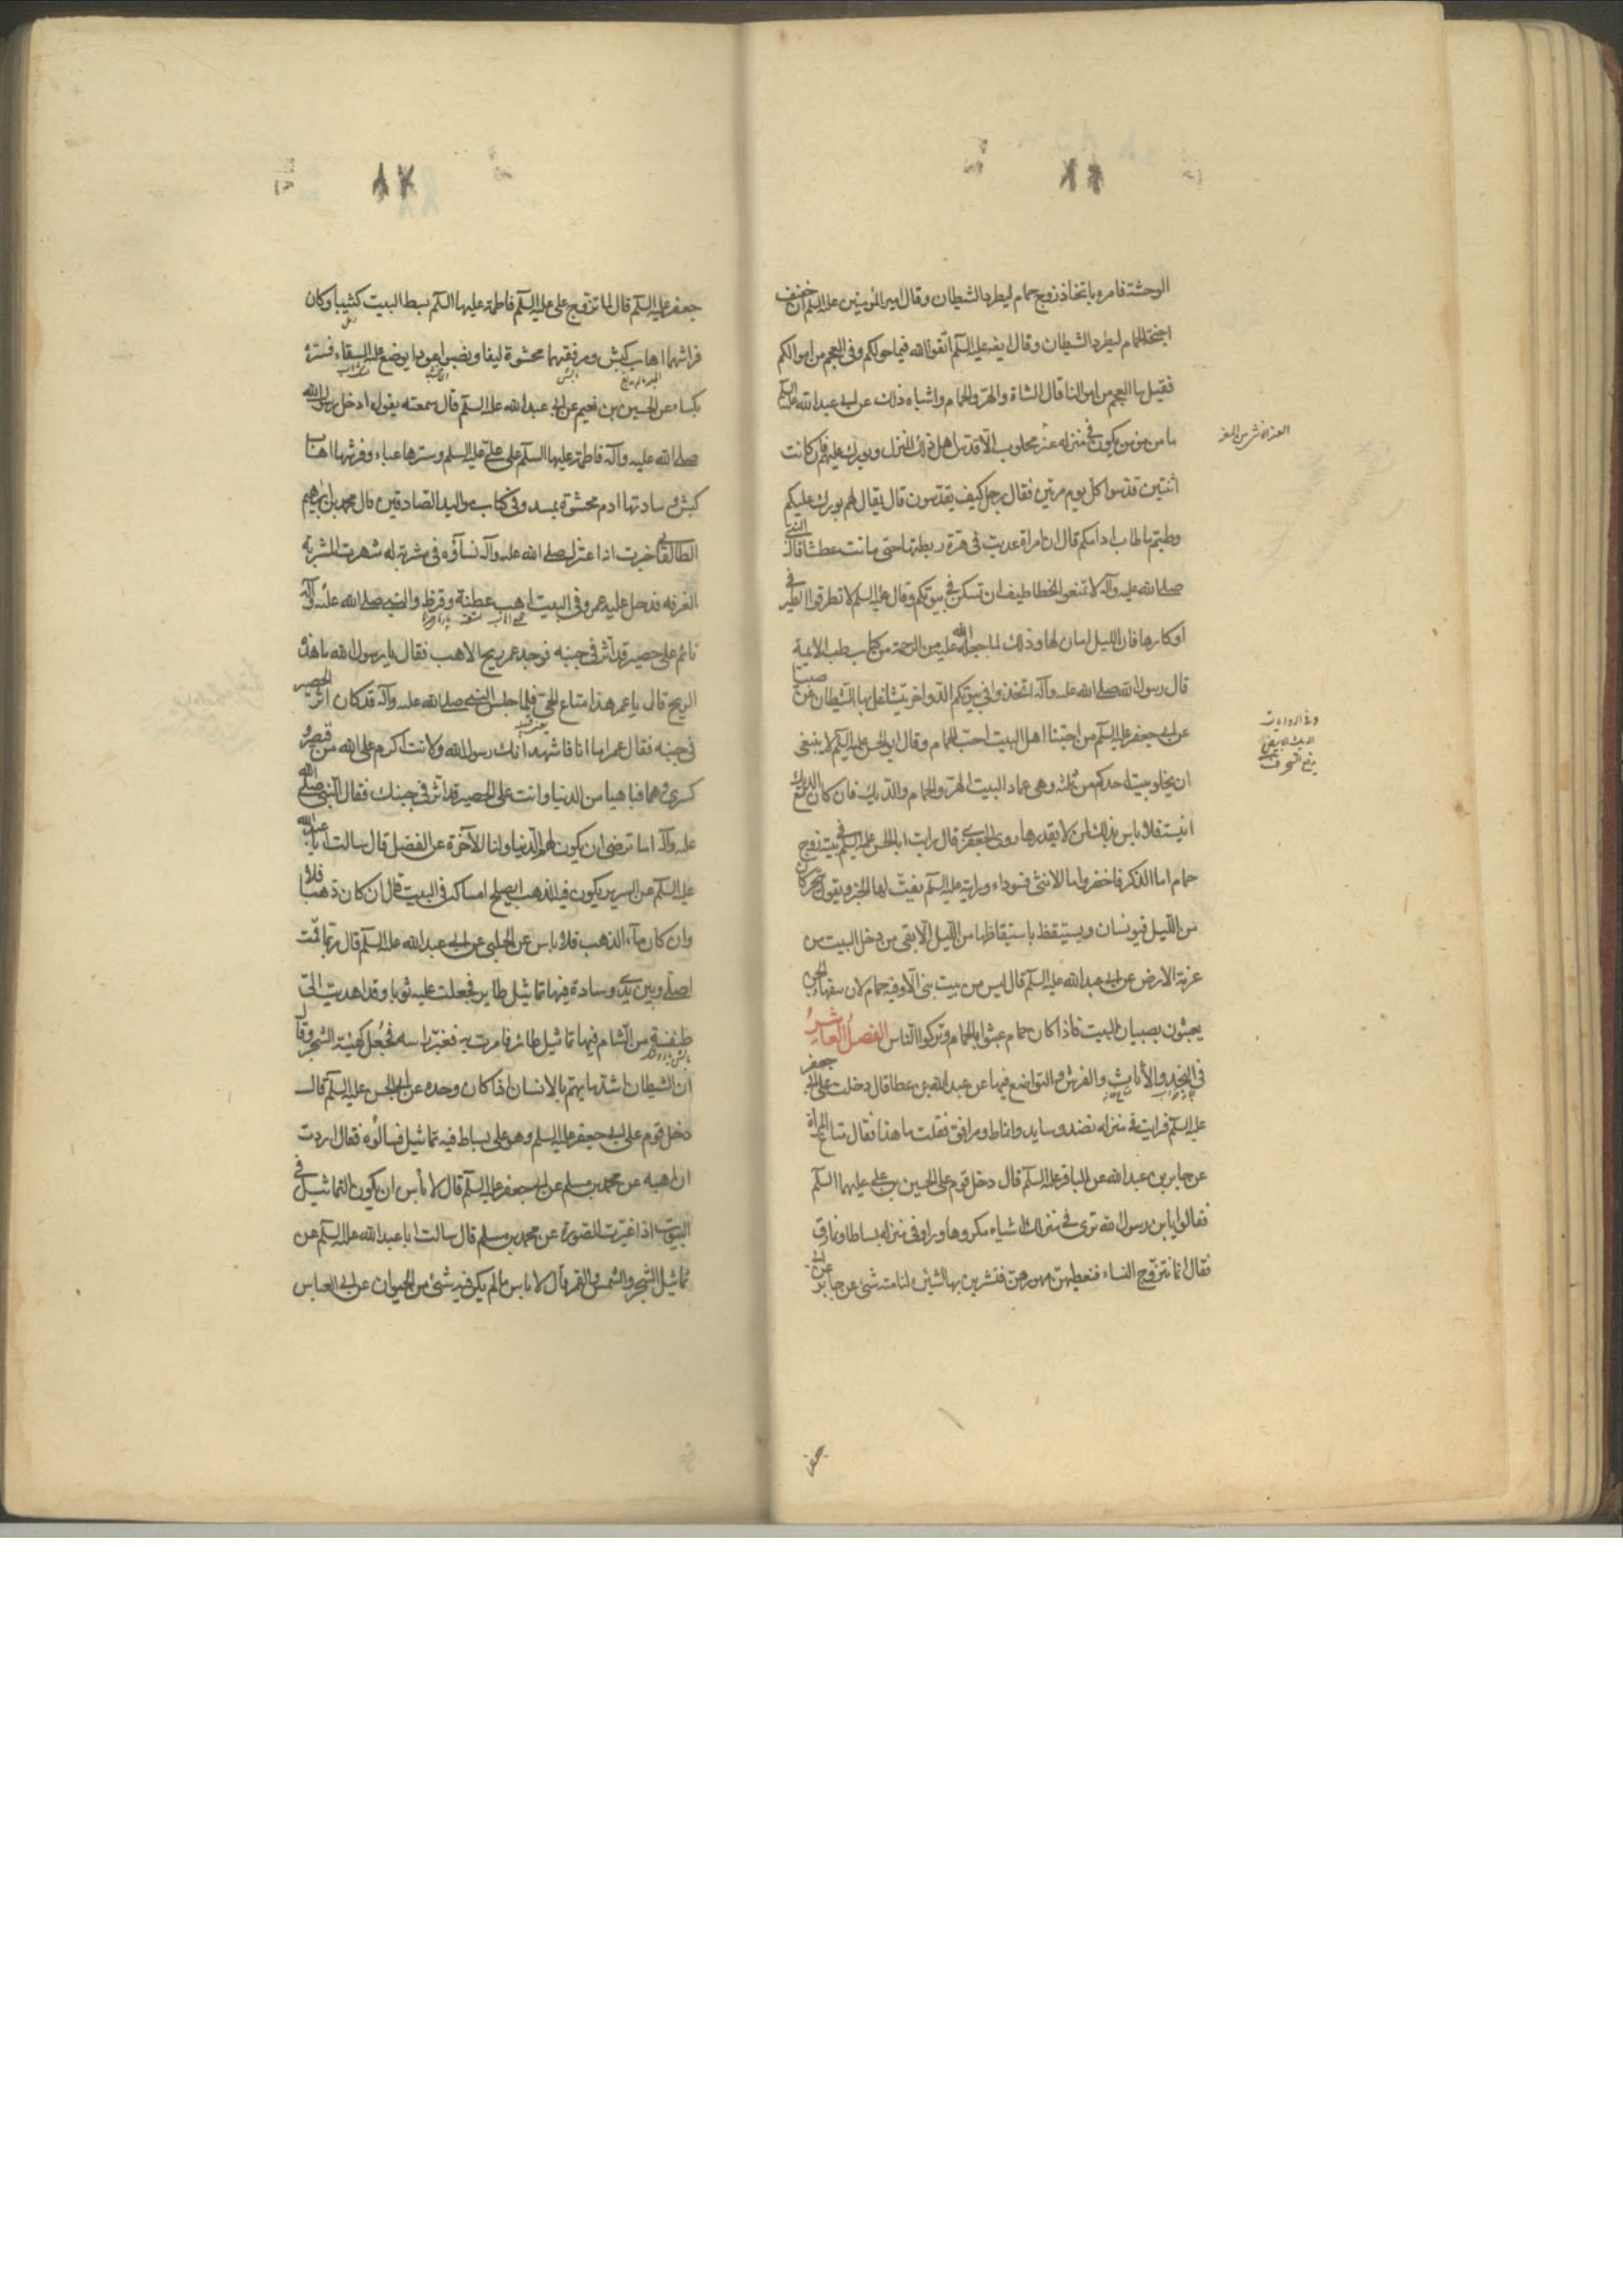 الوحشة فامره باتخاذ زوج حمام ليطرد الشيطان وقال امير المؤمنين عليه السلم ان خفيف
اجنحة الحمام ليطرد الشيطان وقال ايضا عليه السلم اتقوا الله فيما خولكم وفى العجم من اموالكم
فقيل ما العجم من اموالنا قال الشاة والهر والحمام واشباه ذلك عن ابى عبد الله عليه السلم
ما من مؤمن يكون فى منزله عنز محلوب الا قدس اهل ذلك المنزل وبورك عليهم فان كانت
اثنتين قدسوا كل يوم مرتين فقال رجل كيف يقدسون قال يقال لهم بورك عليكم
وطبتم ما طاب ادامكم قال ان امراة عذبت فى هرة ربطتها حتى ماتت عطشا قال النبى
صلى الله عليه وآله لا تمنعوا الخطاطيف ان تسكن فى بيوتكم وقال عليه السلم لا تطرقوا الطير فى
اوكارها فان الليل امان لها وذلك لما جعله الله عليه من الرحمة من كتاب طب الائمة
قال رسول الله صلى الله عليه وآله اتخذوا فى بيوتكم الدواجن يتشاغل بها الشيطان عن صبيانكم
عن ابى جعفر عليه السلم من احبنا اهل البيت احب الحمام وقال ابو الحسن عليه السلم لا ينبغى
ان يخلو بيت احدكم من ثلثة وهى عماد البيت الهر والحمام والديك فان كان مع الديك
انيسة فلا باس بذلك لمن لا يقدرها روى الجعفرى قال رايت ابا الحسن عليه السلم فى بيته زوج
حمام اما الذكر فاخضر واما الانثى فسوداء ورايته عليه السلم يفت لها الخبز ويقول يتحركان
من الليل فيونسان ويستيقظ باستيقاظها من الليل الا بقى من دخل البيت من
عزمة الارض عن ابى عبد الله عليه السلم قال ليس من بيت نبى الا وفيه حمام لان سفهاء الجن
يعبثون بصبيان البيت فاذا كان حمام عبثوا بالحمام وتركوا الناس الفصل العاشر
فى النجد والأثاث والفرش والتواضع فيها عن عبد الله بن عطا قال دخلت على ابى جعفر
عليه السلم فرايت فى منزله نضد وسايد وانماط ومرافق فقلت ما هذا فقال متاع المراة
عن جابر بن عبد الله عن الباقر عليه السلم قال دخل قوم على الحسين بن على عليهما السلم
فقالوا يا بن رسول الله نرى فى منزلك اشياء مكروها وراوا فى منزله بساطا ونمارق
فقال انما نتزوج النساء فنعطيهن مهورهن فتشترين بها ما شئن لنا منه شئ عن جابر عن ابى
جعفر عليه السلم قال لما تزوج على عليه السلم فاطمة عليها السلم بسط البيت كثيبا وكان
فراشهما اهاب كبش ومرفقهما محشوة ليفا ونصبوا عودا يوضع عليه السقاء فستره
بكساء عن الحسين بن نعيم عن ابى عبد الله عليه السلم قال سمعته يقول ادخل رسول الله
صلى الله عليه وآله فاطمة عليها السلم على على عليه السلم وسترها عباء وفرشها اهاب
كبش وسادتها ادم محشوة بمسد وفى كتاب مواليد الصادقين قال محمد بن ابراهيم
الطالقانى اخبرت اذا اعتزل صلى الله عليه وآله نساؤه فى مشربة له شهرت المشربة
الغرفة فدخل عليه عمر وفى البيت اهب عطنة وقرظ والنبى صلى الله عليه وآله
نائم على حصير قد اثر فى جنبه فوجد عمر ريح الاهب فقال يا رسول الله ما هذه
الريح قال يا عمر هذا متاع الحى فلما جلس النبى صلى الله عليه وآله قد كان اثر الحصير
فى جنبه فقال عمر اما انا فاشهد انك رسول الله ولانت اكرم على الله من قيصر و
كسرى وهما فيما هما من الدنيا وانت على الحصير قد اثر فى جنبك فقال النبى صلى الله
عليه وآله اما ترضى ان يكون لهم الدنيا ولنا الآخرة عن الفضيل قال سالت ابا عبد الله
عليه السلم عن السرير يكون فيه الذهب ايصلح امساكه فى البيت قال ان كان ذهبا فلا
وان كان ماء الذهب فلا باس عن الحلبى عن ابى عبد الله عليه السلم قال ربما قمت
اصلى وبين يدى وسادة فيها تماثيل طاير فجعلت عليه ثوبا وقد اهديت الى
طنفسة من الشام فيها تماثيل طائر فامرت به فغير راسه فجعل كهيئة الشجر وقال
ان الشيطان اشد ما يهم بالانسان اذا كان وحده عن ابى الحسن عليه السلم قال
دخل قوم على ابى جعفر عليه السلم وهو على بساط فيه تماثيل فسالوه فقال اردت
ان اهبه عن محمد بن مسلم عن ابى جعفر عليه السلم قال لا بأس ان يكون التماثيل فى
البيوت اذا غيرت الصورة عن محمد بن مسلم قال سالت ابا عبد الله عليه السلم عن
تماثيل الشجر والشمس والقمر قال لا باس ما لم يكن فيه شئ من الحيوان عن ابى العباس